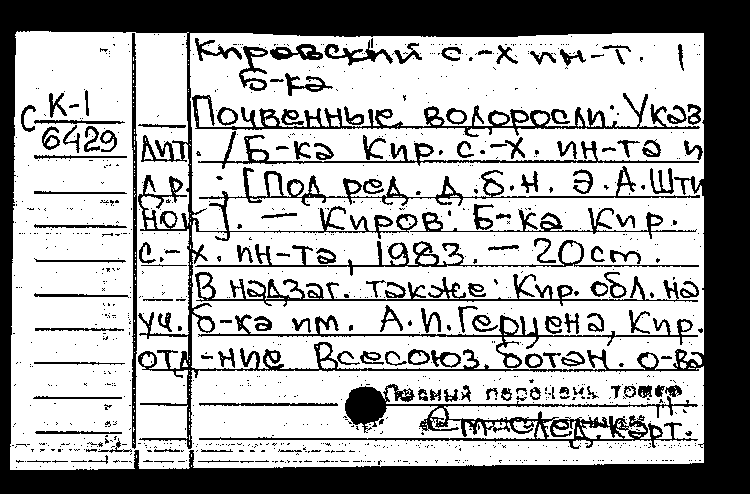 Кировский с.-х ин-т. 1
Б-ка
С К-1
6429
Почвенные водоросли: Указ.
лит. / Б-ка Кир. с.-х. ин-та и
др. ; [Под ред. д.б.н. Э.А.Шти
ной]. — Киров: Б-ка Кир.
с.-х. ин-та, 1983. — 20 ст.
В надзаг. также: Кир. обл. на
уч. б-ка им. А.И.Герцена, Кир.
отд-ние Всесоюз. ботан. о-ва
Полный перечень томов
след. карт.